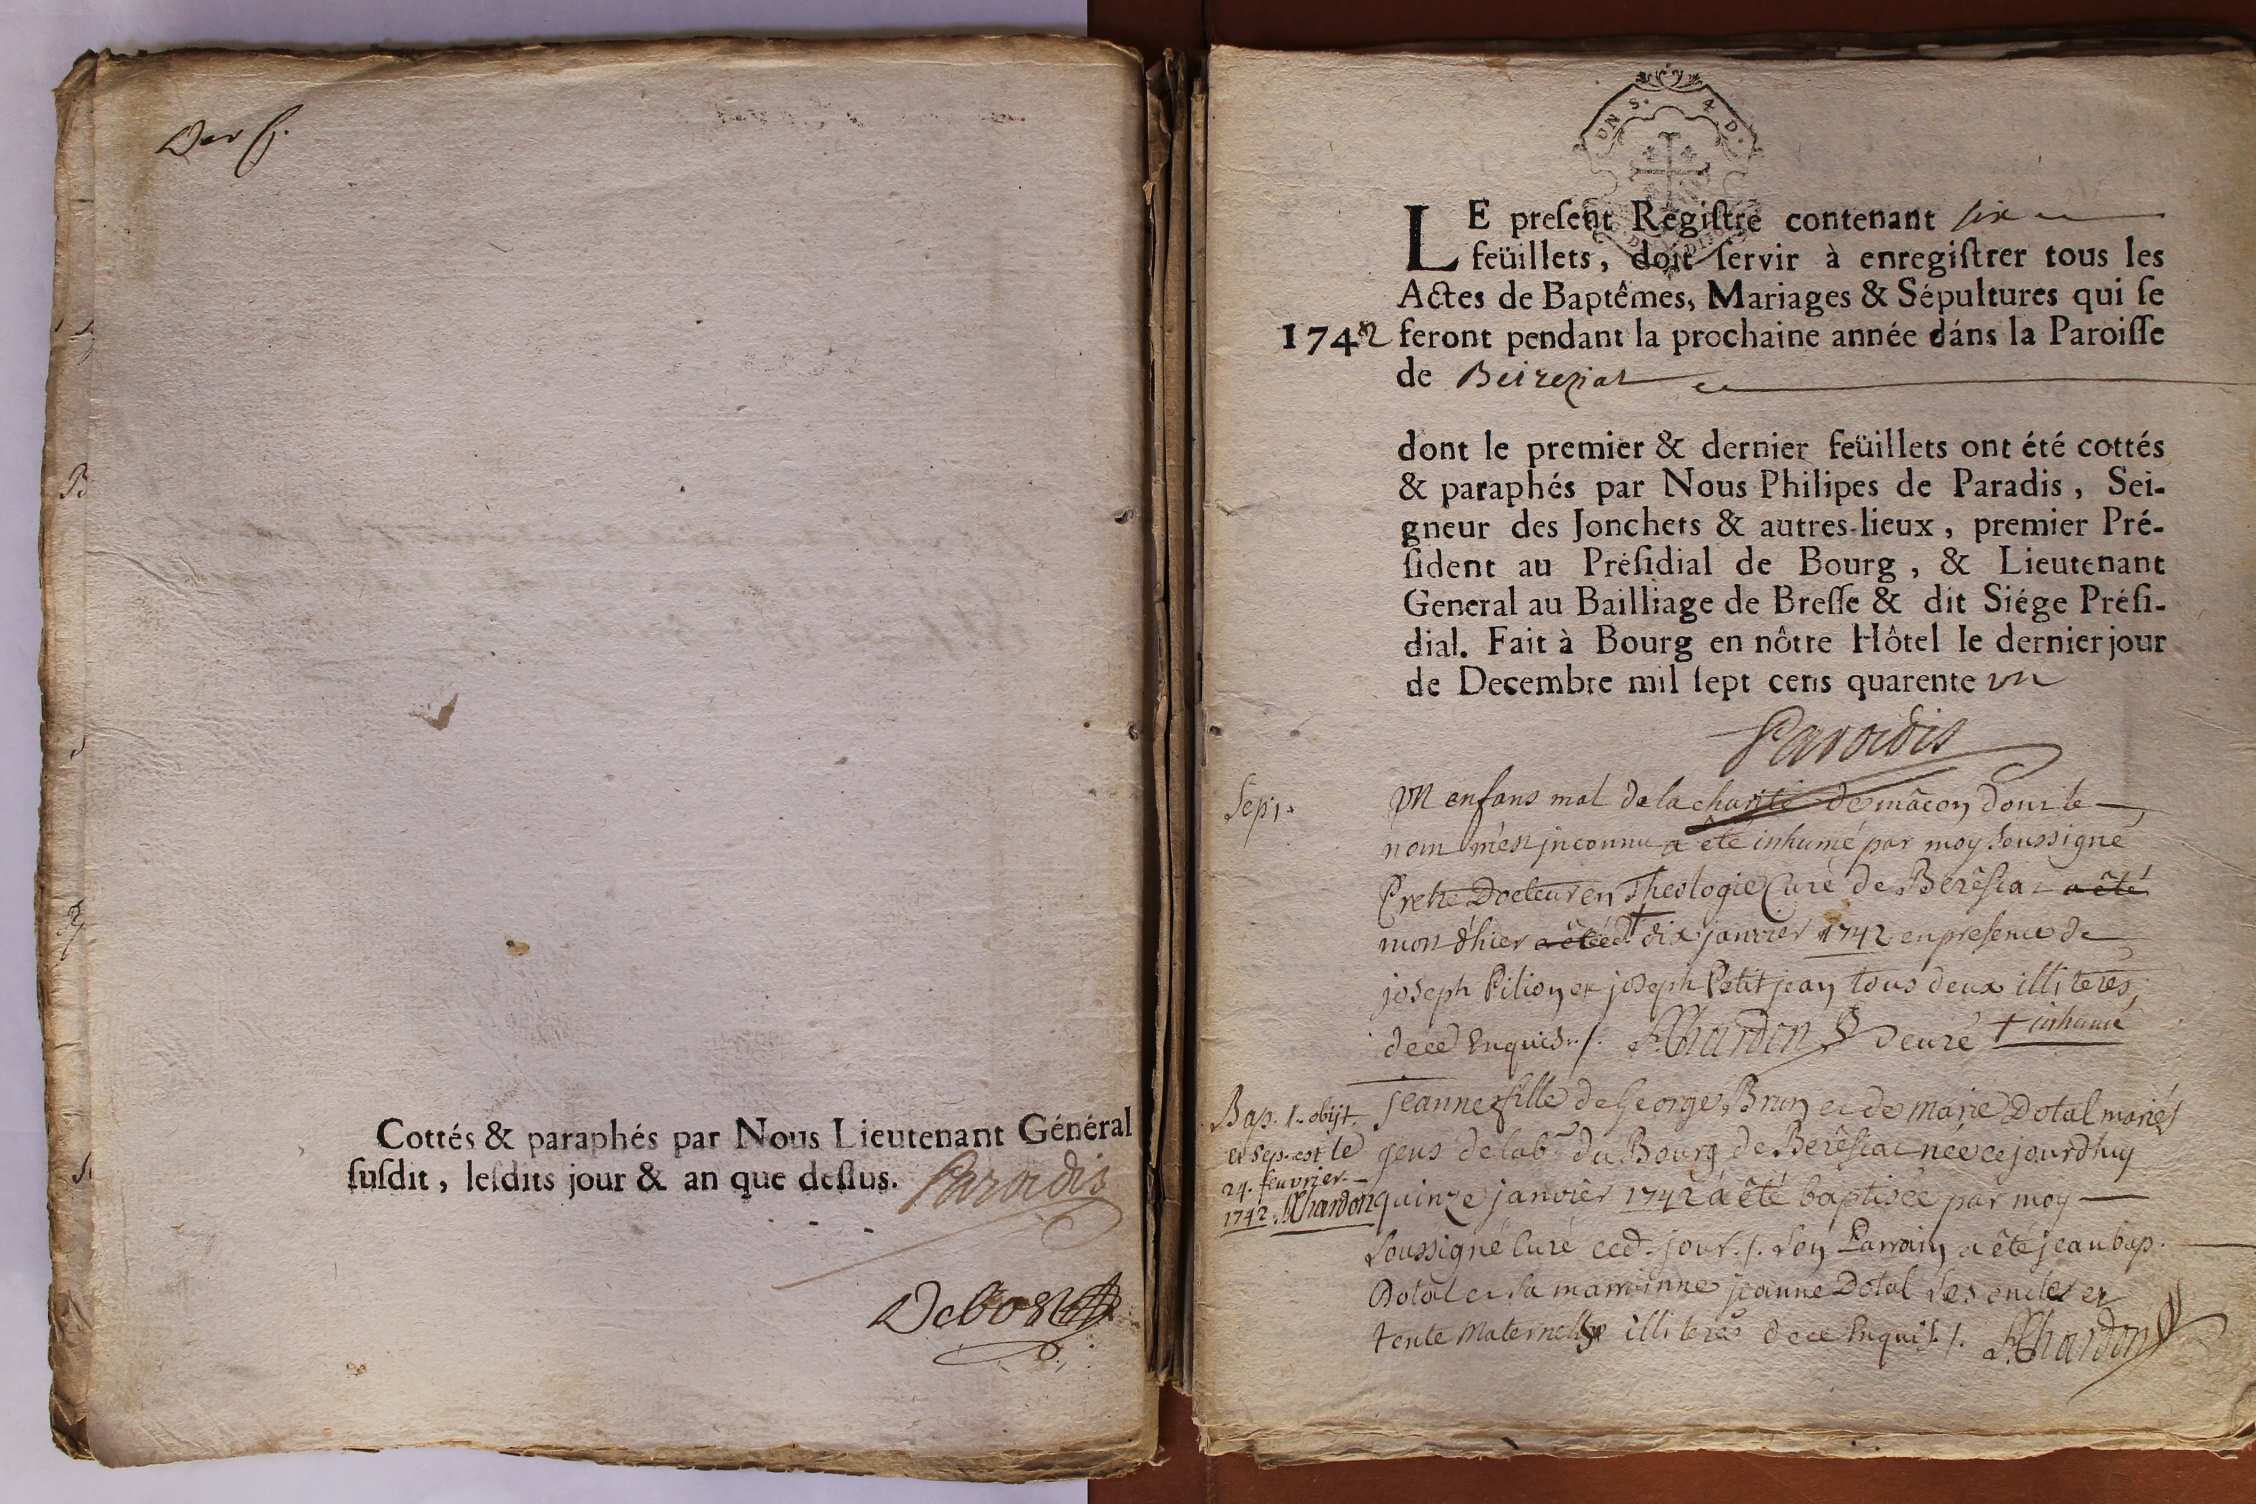 Der f.
Cottés & paraphés par Nous Lieutenant Général
susdit, lesdits jour & an que dessus. Paradis
Debost
UN S. 4 D.
LE present Registre contenant six
feüillets, doit servir à enregistrer tous les
Actes de Baptêmes, Mariages & Sépultures qui se
1742 feront pendant la prochaine année dáns la Paroisse
de Beireziat
dont le premier & dernier feüillets ont été cottés
& paraphés par Nous Philipes de Paradis, Sei-
gneur des Jonchets & autres-lieux, premier Pré-
sident au Présidial de Bourg, & Lieutenant
General au Bailliage de Bresse & dit Siége Prési-
dial. Fait à Bourg en nôtre Hôtel le dernier jour
de Decembre mil sept cens quarente un
Paradis
Sep. 1.
un enfans mal de la charité de mâcon dont le
nom m'est jnconnu a êté inhumé par moy soussigné
Pretre Docteur en Theologie Curé de Berêsiat a êté
mort d'hier a êté dix janvier 1742 en presence de
joseph Pilion et joseph Petitjean tous deux illiterés,
de ce Enquis ./. Chardon curé + inhumé
Bap. 1. obijt
et sep. est le
24. feuvrier
1742. Chardon
jeanne fille de George Brun et de marie Dotal mariés
gens de lab.r du Bourg de Berêsiat née cejourdhuy
quinze janvier 1742 a êté baptisée par moy
soussigné Curé ced. jour ./. son Parrain a êté jean bap.
Dotal et sa marrainne jeanne Dotal ses oncle et
tente maternelle illiterés de ce Enquis ./. Chardon